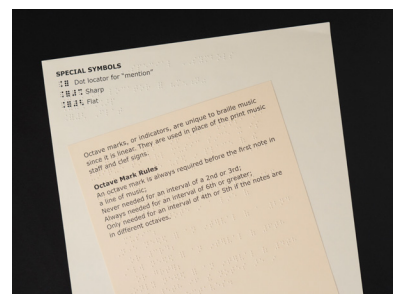 SPECIAL SYMBOLS
Dot locator for "mention"
Sharp
Flat
Octave marks, or indicators, are unique to braille music
since it is linear. They are used in place of the print music
staff and clef signs.
Octave Mark Rules
An octave mark is always required before the first note in
a line of music;
Never needed for an interval of a 2nd or 3rd;
Always needed for an interval of 6th or greater;
Only needed for an interval of 4th or 5th if the notes are
in different octaves.